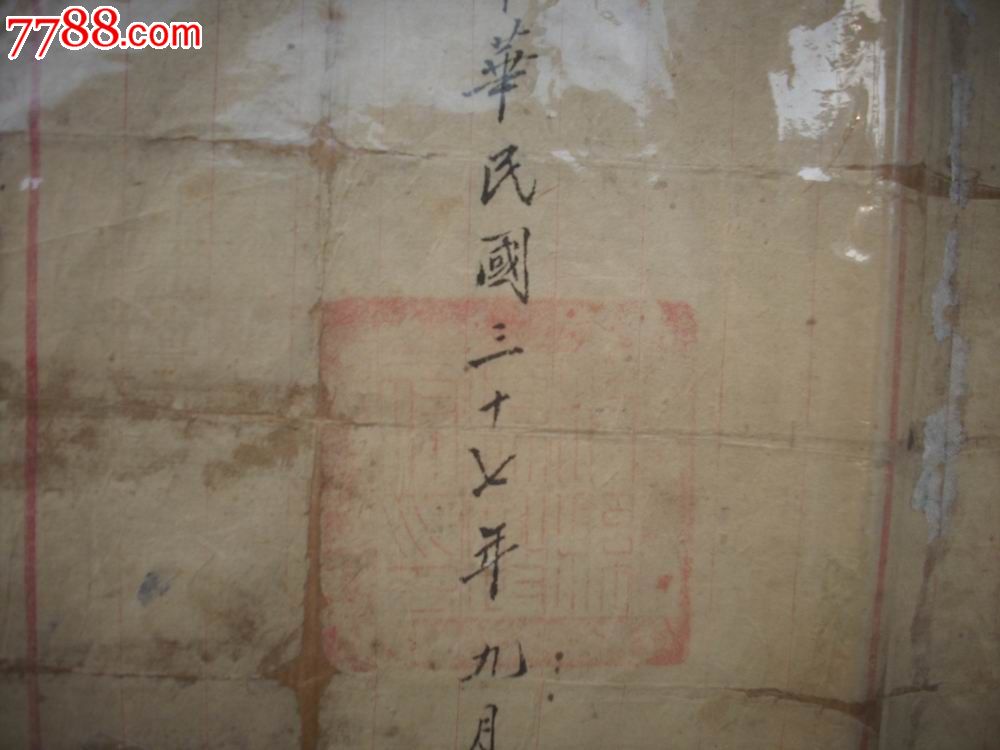 7788.com
中華民國三十七年九月